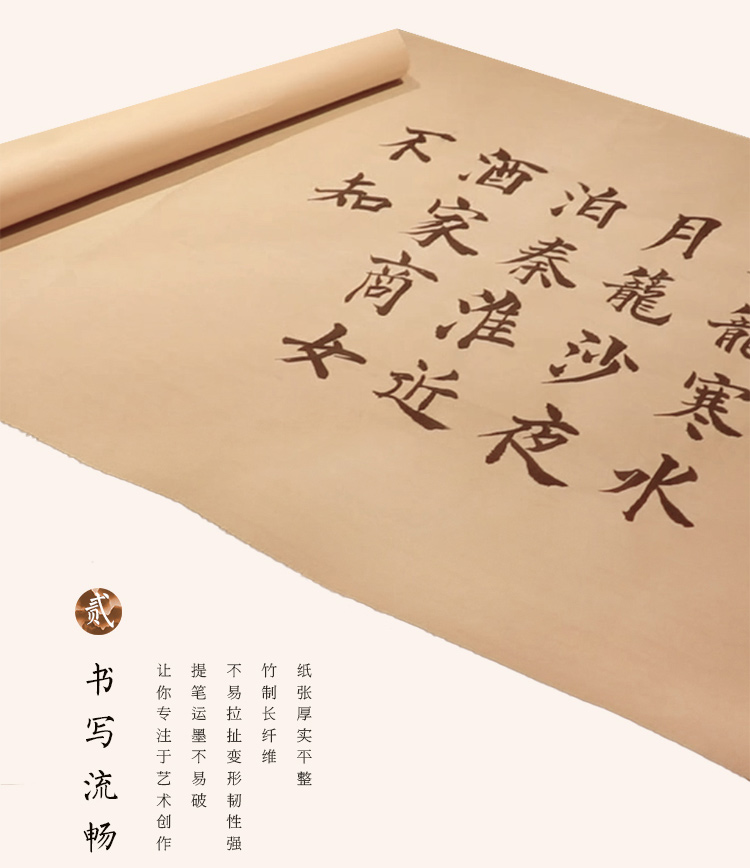 籠寒水
月籠沙夜
泊秦淮近
酒家商女
不知
贰
书写流畅
纸张厚实平整
竹制长纤维
不易拉扯变形韧性强
提笔运墨不易破
让你专注于艺术创作